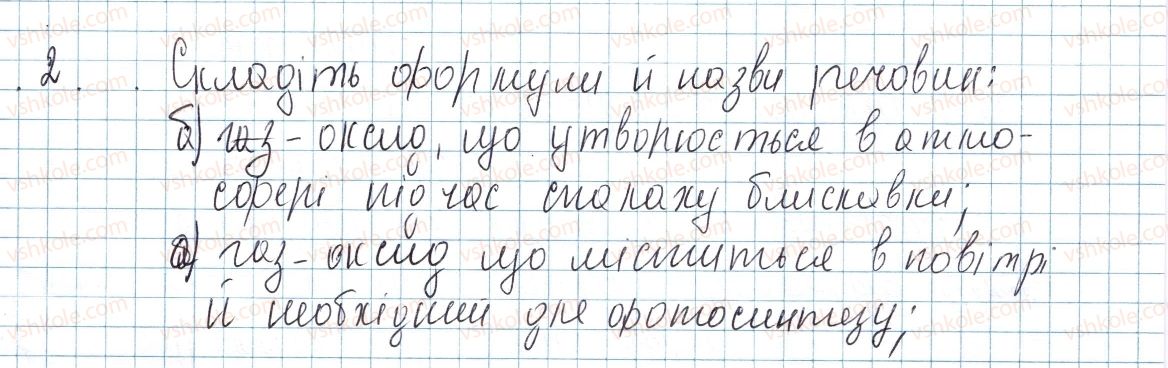 2. Складіть формули й назви речовин:
б) газ - оксид, що утворюється в атмо-
сфері під час спалаху блискавки;
а) газ - оксид що міститься в повітрі
й необхідний для фотосинтезу;